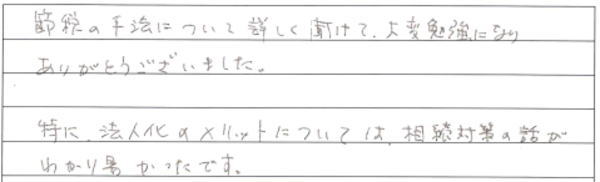 節税の手法について詳しく聞けて、大変勉強になり
ありがとうございました。
特に、法人化のメリットについては、相続対策の話が
わかり易かったです。